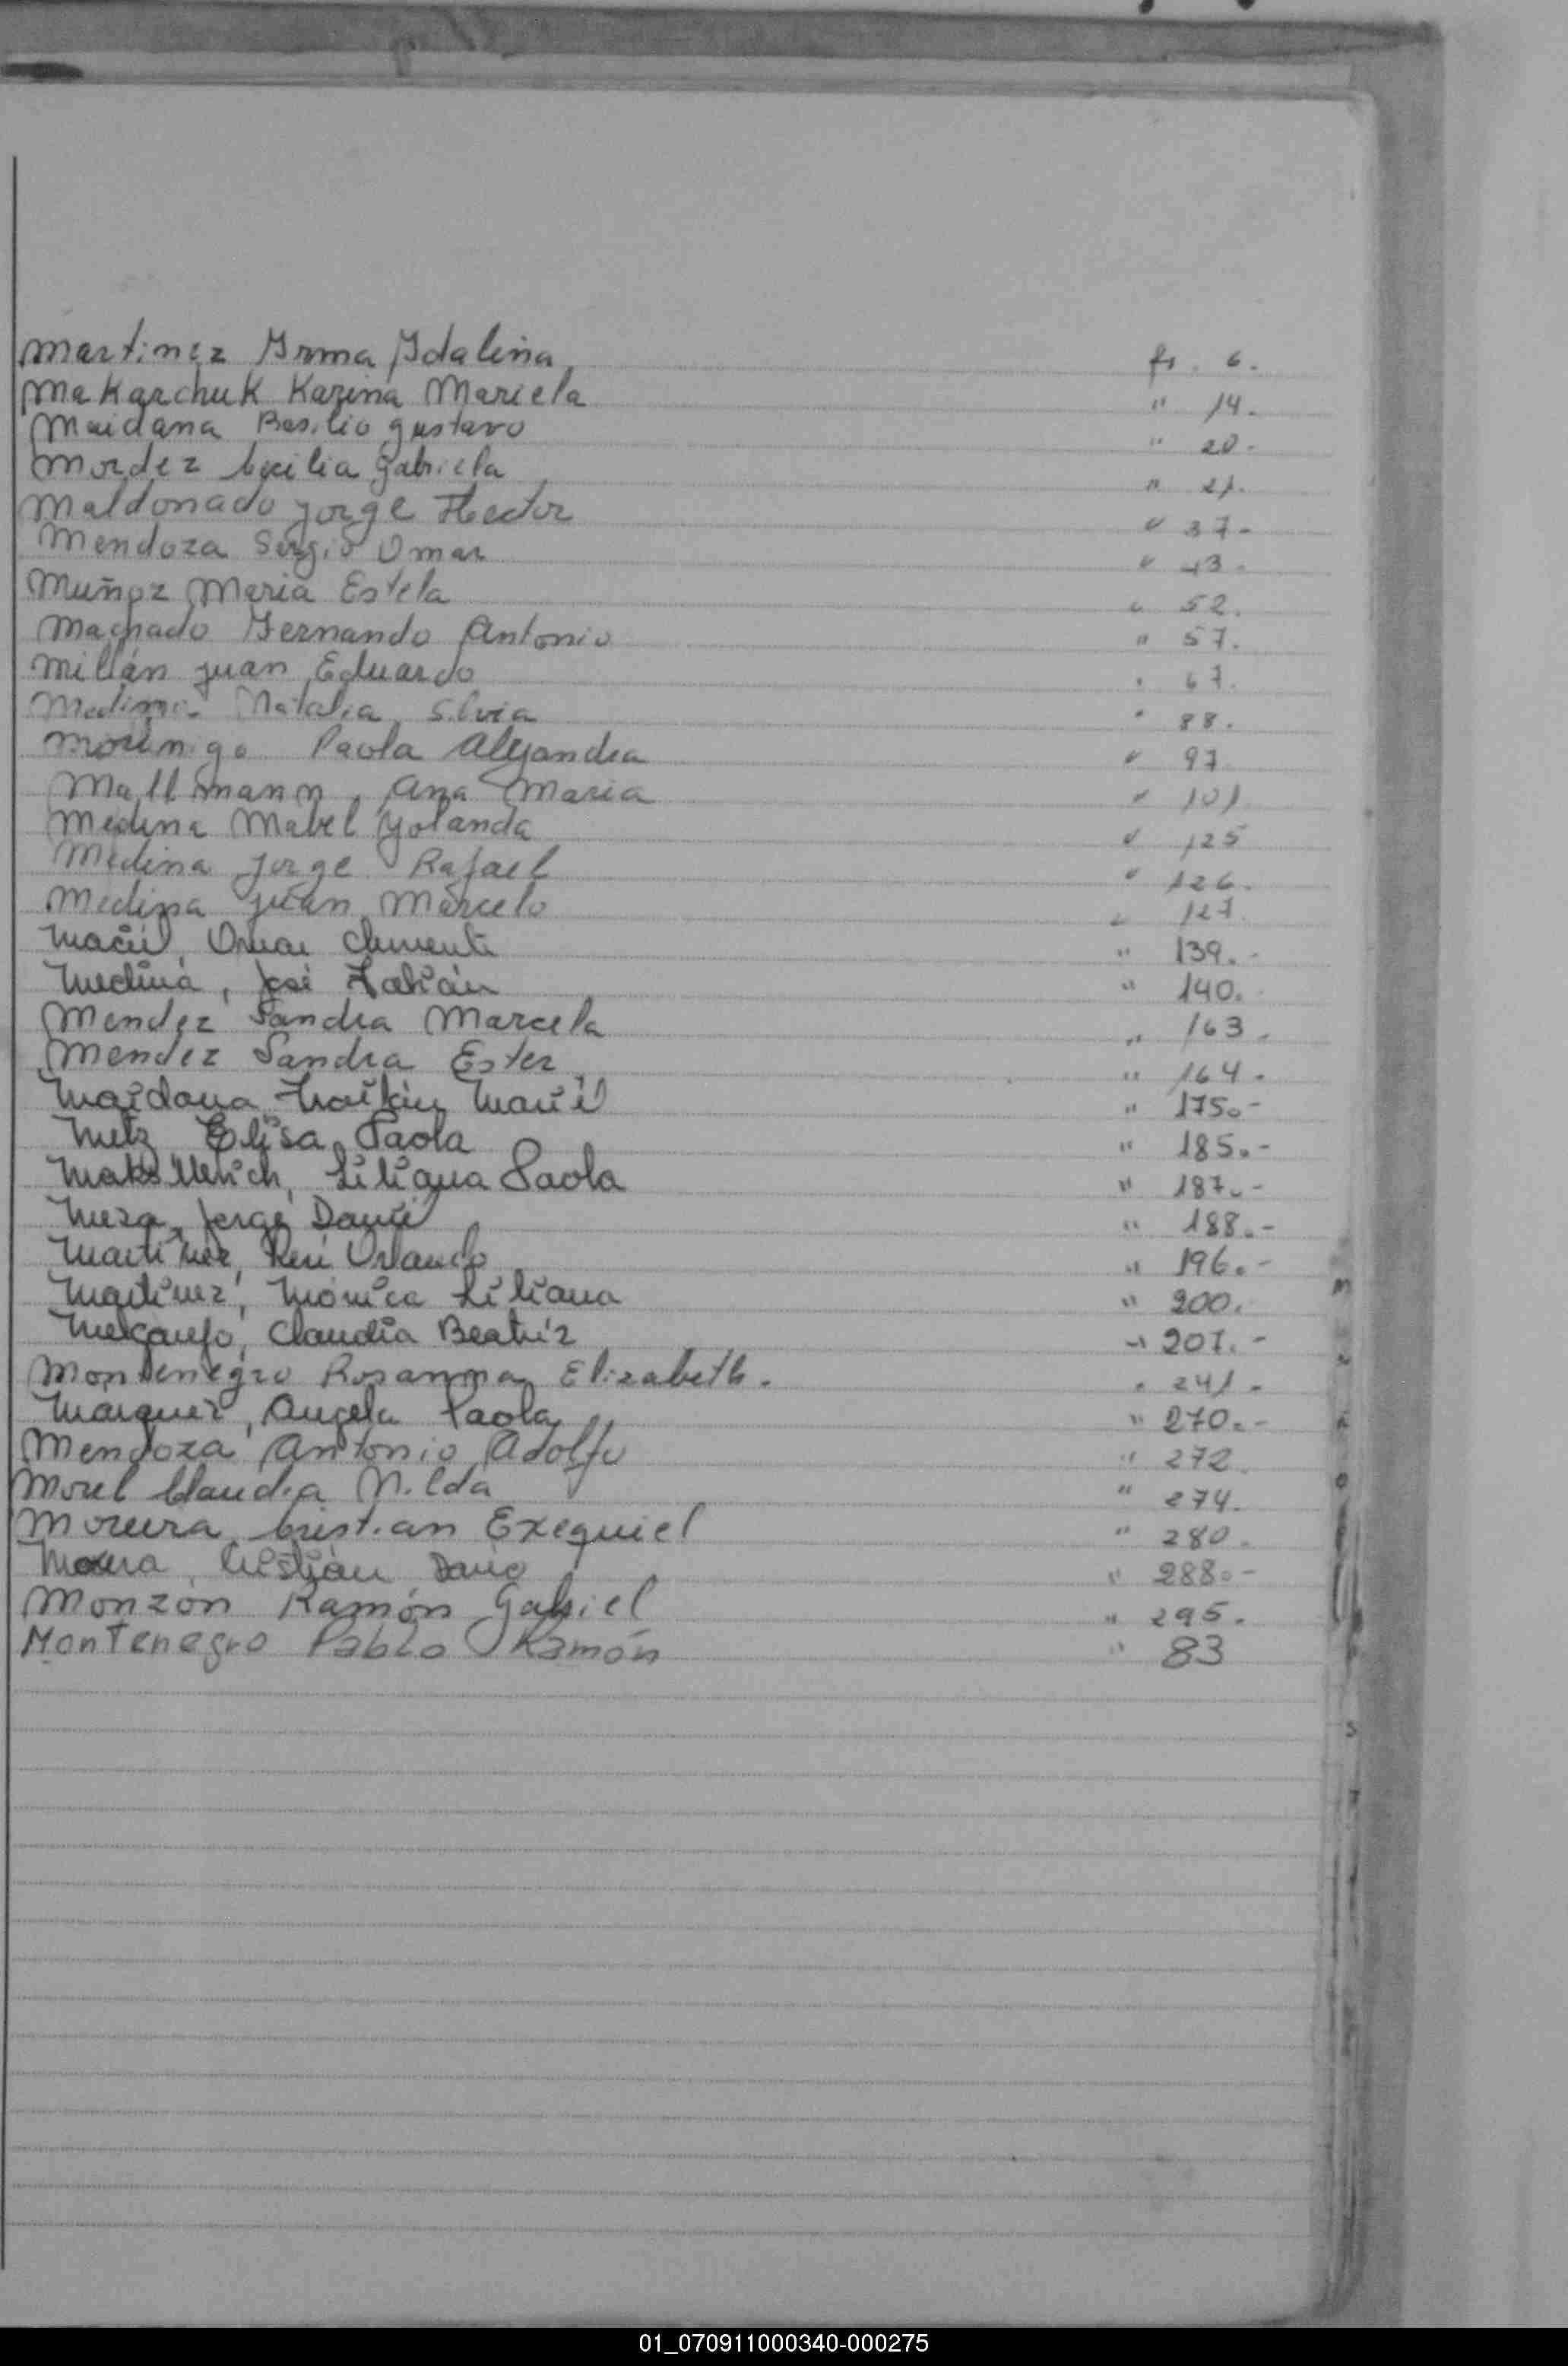 Martinez Irma Idalina fs. 6.
Makarchuk Karina Mariela " 14.
Maidana Basilio Gustavo " 20.
Mordez Cecilia Gabriela " 21.
Maldonado Jorge Hector " 37-
Mendoza Sergio Omar " 43.
Muñoz Maria Estela " 52.
Machado Fernando Antonio " 57.
Millán Juan Eduardo " 67.
Medina Natalia Silvia " 88.
Morinigo Paola Alejandra " 97
Mattmann, Ana Maria " 101
Medina Mabel Yolanda " 125
Medina Jorge Rafael " 126.
Medina Juan Marcelo " 127.
Maciel, Omar Clemente " 139.-
Medina, José Fabián " 140.
Mendez Sandra Marcela " 163.
Mendez Sandra Ester " 164.
Maidana 175.-
Metz Elisa Paola " 185.-
Liliana Paola " 187.-
Meza, Jorge Daniel " 188.-
Martinez, René Orlando " 196.-
Martinez, Mónica Liliana " 200.
Claudia Beatriz " 207.-
Montenegro Rosanna Elizabeth. " 241.
Marquez, Angela Paola " 270.-
Mendoza Antonio Adolfo " 272
Morel Claudia Nilda " 274.
Moreira Cristian Exequiel " 280.
Cristian Dario " 288.-
Monzón Ramón Gabriel " 295.
Montenegro Pablo Ramón " 83
01_070911000340-000275